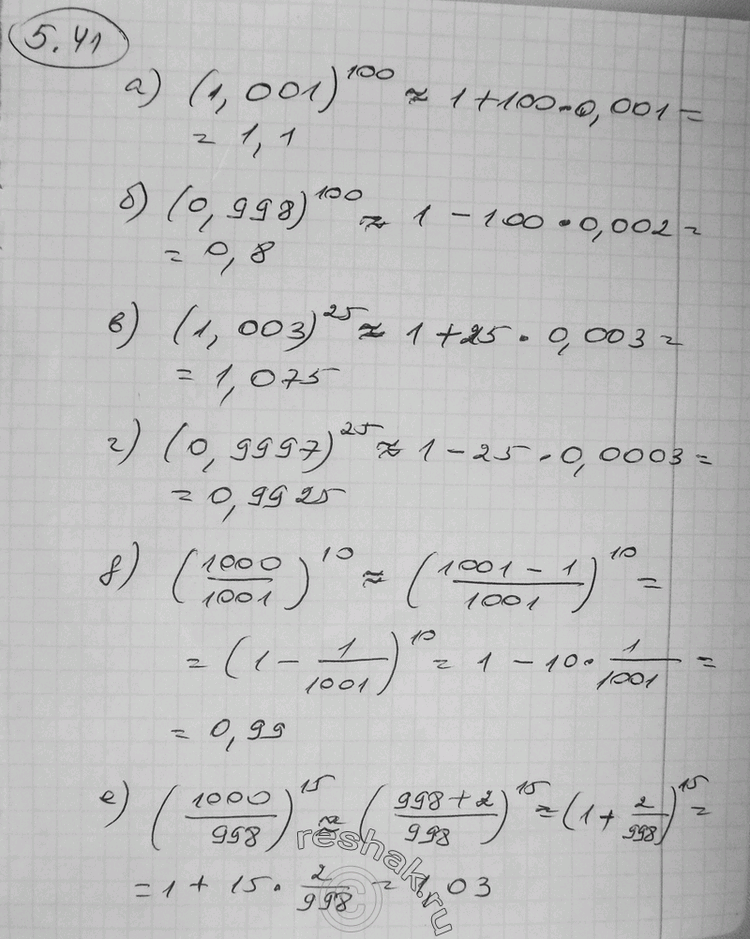 5.41
а) (1,001)^100 ≈ 1+100·0,001 =
= 1,1
б) (0,998)^100 ≈ 1 - 100·0,002 =
= 0,8
в) (1,003)^25 ≈ 1+25·0,003 =
= 1,075
г) (0,9997)^25 ≈ 1-25·0,0003 =
= 0,9925
д) (1000/1001)^10 ≈ ((1001-1)/1001)^10 =
= (1 - 1/1001)^10 = 1 - 10·1/1001 =
= 0,99
е) (1000/998)^15 ≈ ((998+2)/998)^15 = (1+2/998)^15 =
= 1 + 15·2/998 = 1,03
reshak.ru